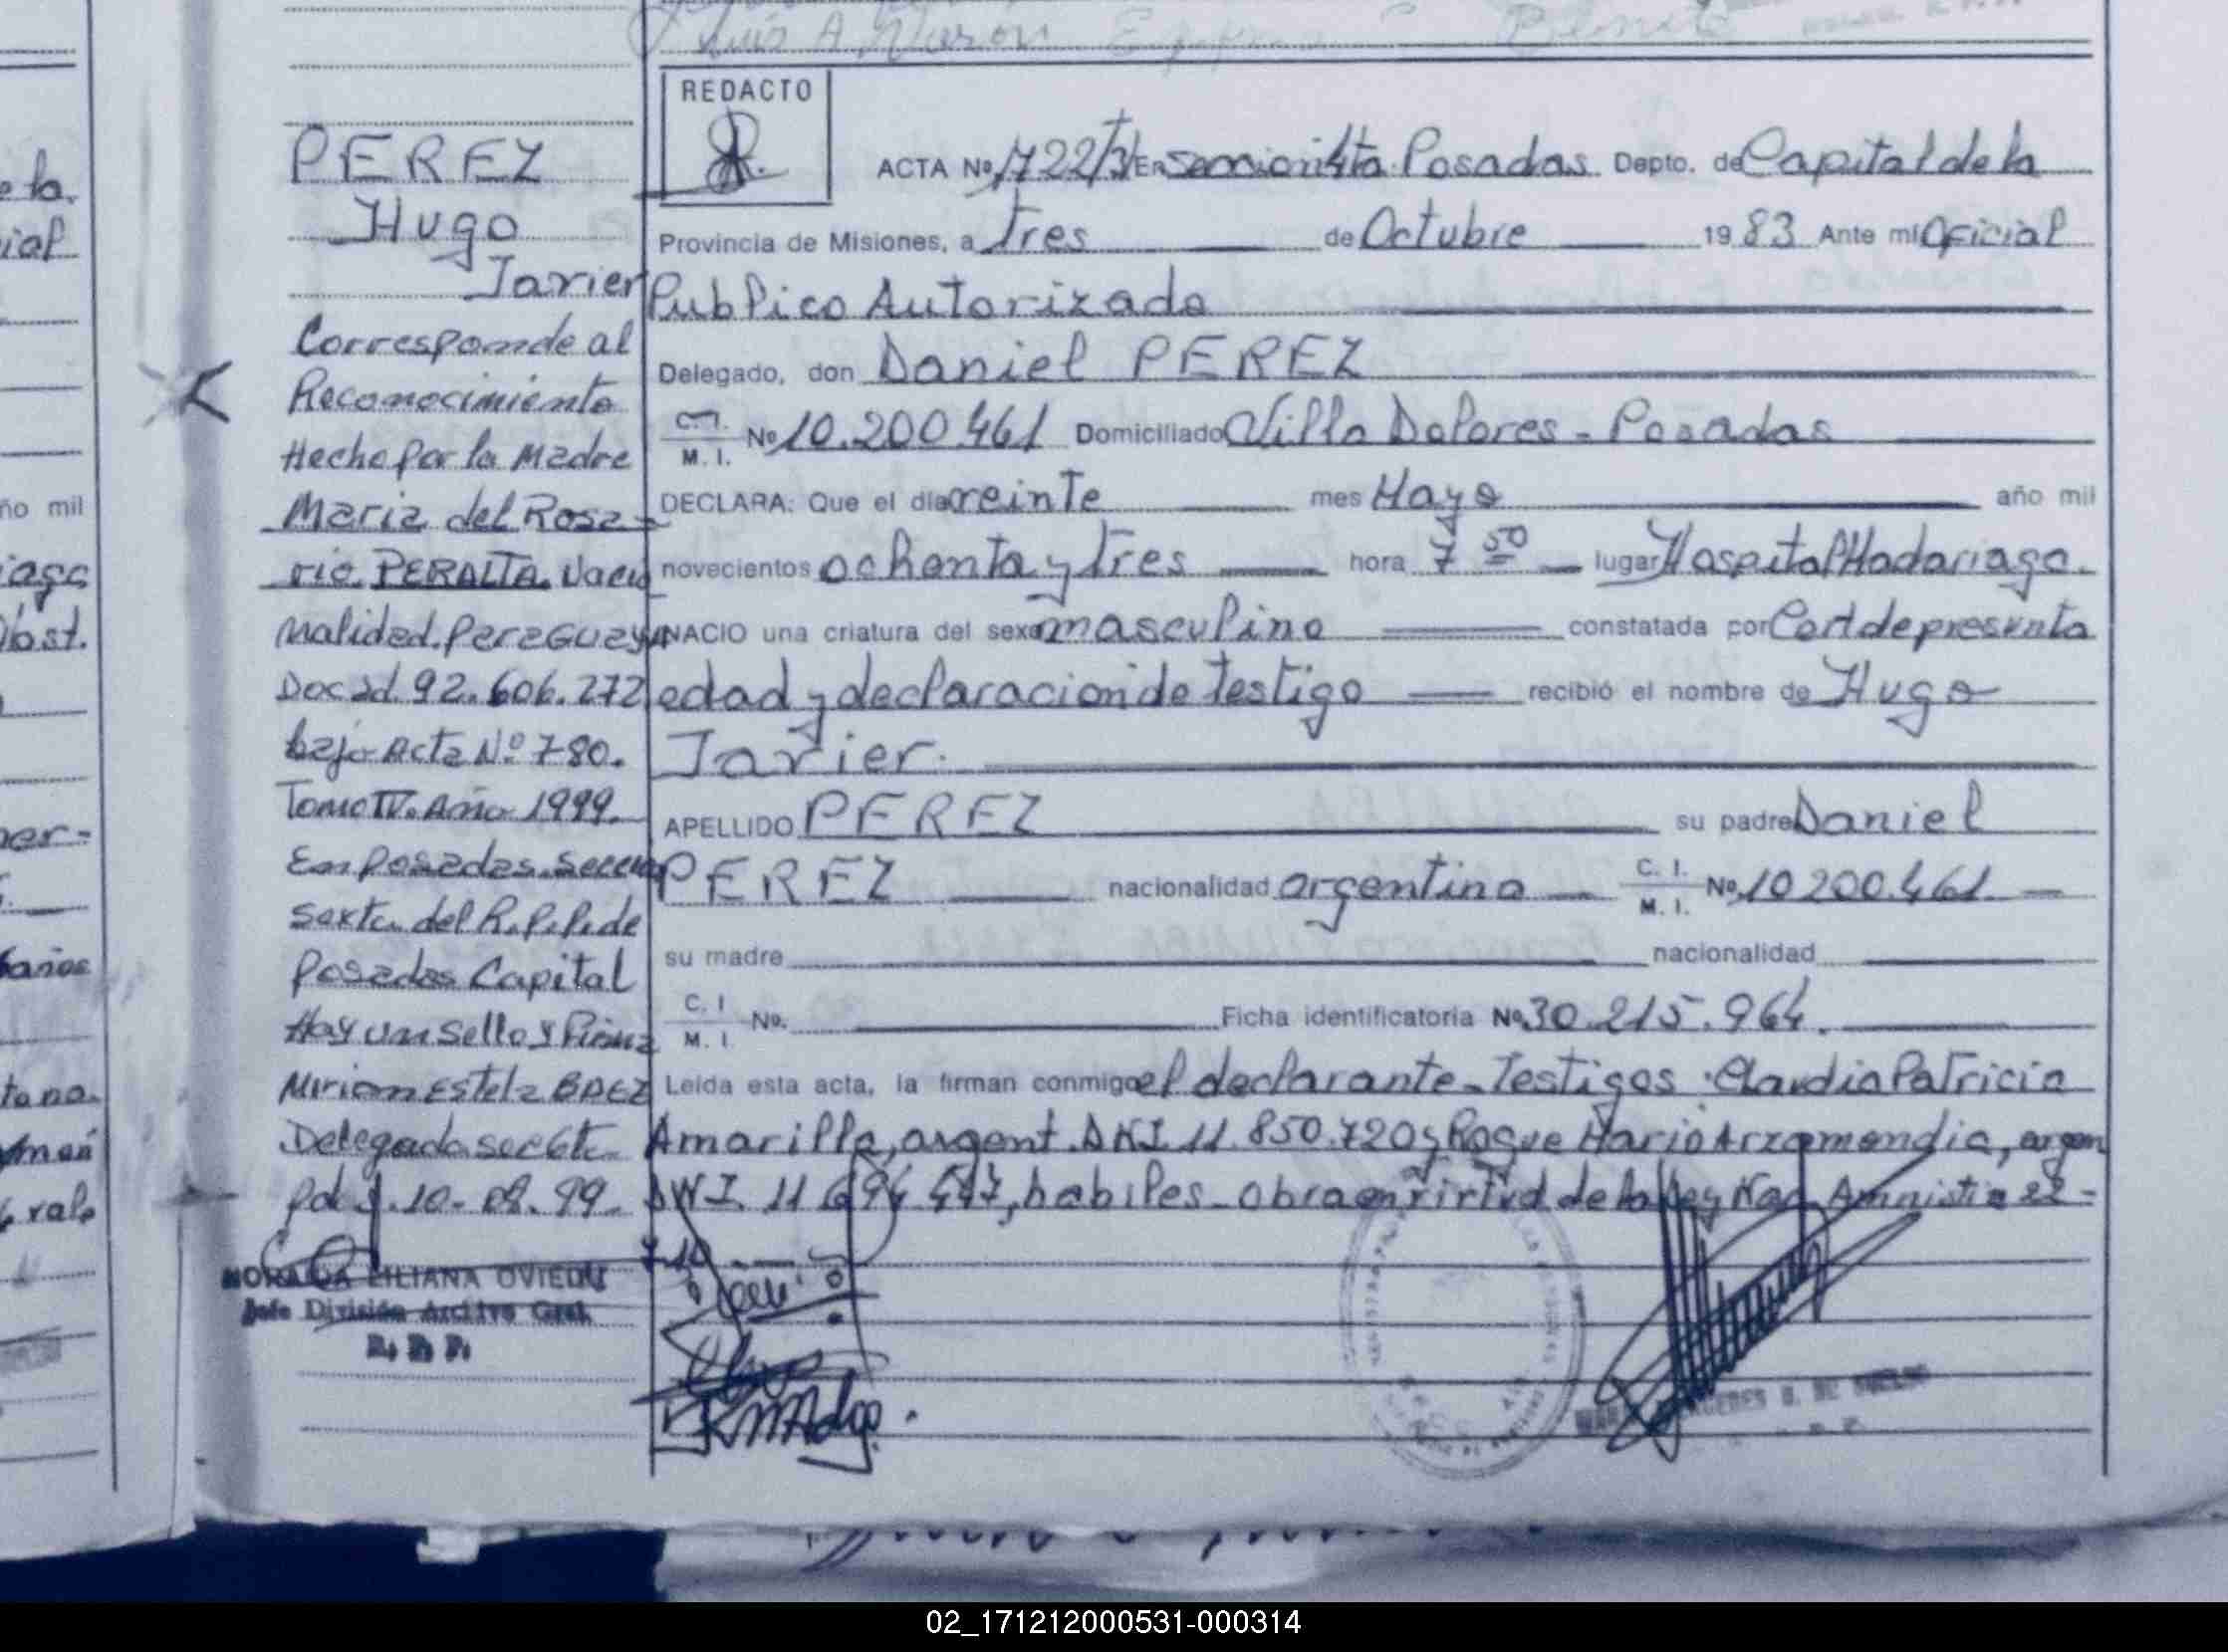 Luis A.
REDACTO
ACTA Nº 1722/3/ En sección 4ta Posadas Depto. de Capital de la
Provincia de Misiones, a tres de Octubre 1983 Ante mi Oficial
Publico Autorizado
Delegado, don Daniel PEREZ
C.I. M.I. Nº 10.200.461 Domiciliado Villa Dolores - Posadas
DECLARA: Que el día veinte mes Mayo año mil
novecientos ochenta y tres hora 7 50 lugar Hospital Madariaga.
NACIO una criatura del sexo masculino constatada por Cert de presunta
edad y declaracion de testigo recibió el nombre de Hugo
Javier.
APELLIDO PEREZ su padre Daniel
PEREZ nacionalidad argentina C. I. M. I. Nº 10200.461
su madre nacionalidad
C. I M. I. Nº. Ficha identificatoria Nº 30.215.964.
Leída esta acta, la firman conmigo el declarante - Testigos: Claudia Patricia
Amarilla, argent. DNI 11.850.720 y Roque Mario Arzamendia, argen
DNI. 11 694 547, habiles - obra en virtud de la Ley Nac. Amnistia 22-
410
PEREZ
Hugo
Javier
Corresponde al
Reconocimiento
Hecho por la Madre
Maria del Rosa-
rio PERALTA. Nacio
nalidad. Paraguaya
Doc id. 92.606.272
bajo Acta Nº 780.
Tomo IV. Año 1999.
En Posadas. Seccion
Sexta del R.P.P. de
Posadas Capital
Hay un Sello y Firma
Miriam Estela BAEZ
Delegada sec 6ta
Pdas. 10-08.99.
LILIANA OVIEDO
Jefe División Archivo Gral.
R. P. P.
e la.
ial
ño mil
iaga
Obst.
años
tana.
vale
02_171212000531-000314